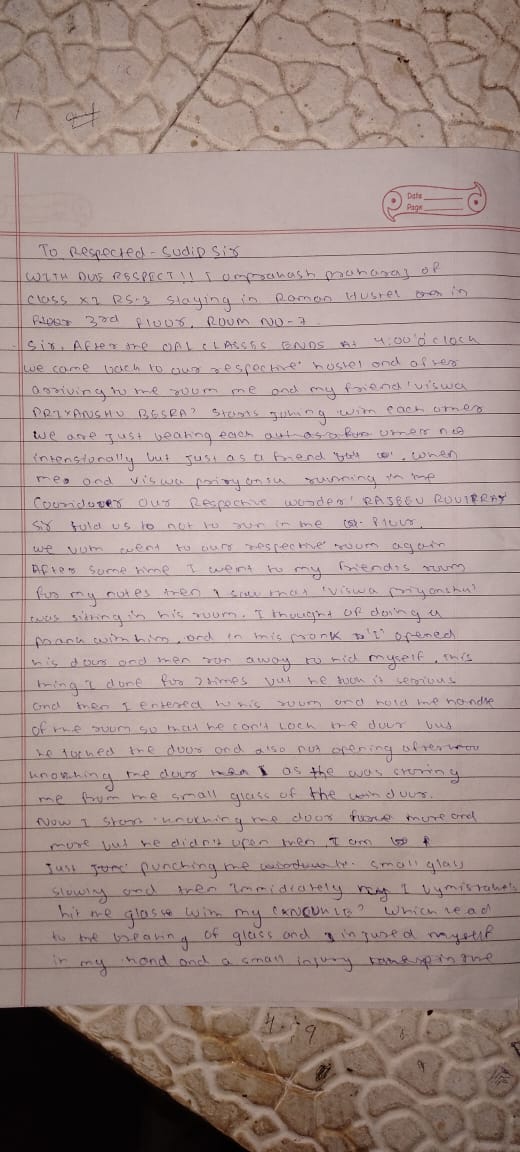 Date
Page
To Respected - Sudip Sir
WITH DUE RESPECT!! I omprakash praharaj of
class XI RS-3 staying in Raman Hostel in
3rd Floor, ROOM NO-7
Sir, After the CLASSES ENDS At 4:00 o'clock
we came back to our respective hostel and after
arriving to the room me and my friend 'viswa
PRIYANSHU BESRA' starts joking with each other
we are just beating each other not
intensionally but just as a friend, when
me and viswa priyansu running in the
our Respective warden' RAJEEV
sir told us to not to run in the Floor.
we went to our respective room again
After some time I went to my friend's room
for my notes then I saw that 'viswa priyanshu'
was sitting in his room. I thought of doing a
prank with him, and in this prank 'I' opened
his door and then run away to hid myself, this
thing I done for 2 times but he took it serious
and then I entered to his room and hold the handle
of the room so that he can't lock the door but
he locked the door and also not opening after
knocking the door then as the was staring
me from the small glass of the door.
Now I start knocking the door more and
more but he didn't open then I am
Just punching the small glass
slowly and then immidiately I bymistake
hit the glass with my which lead
to the breaking of glass and injured myself
in my hand and a small injury in the